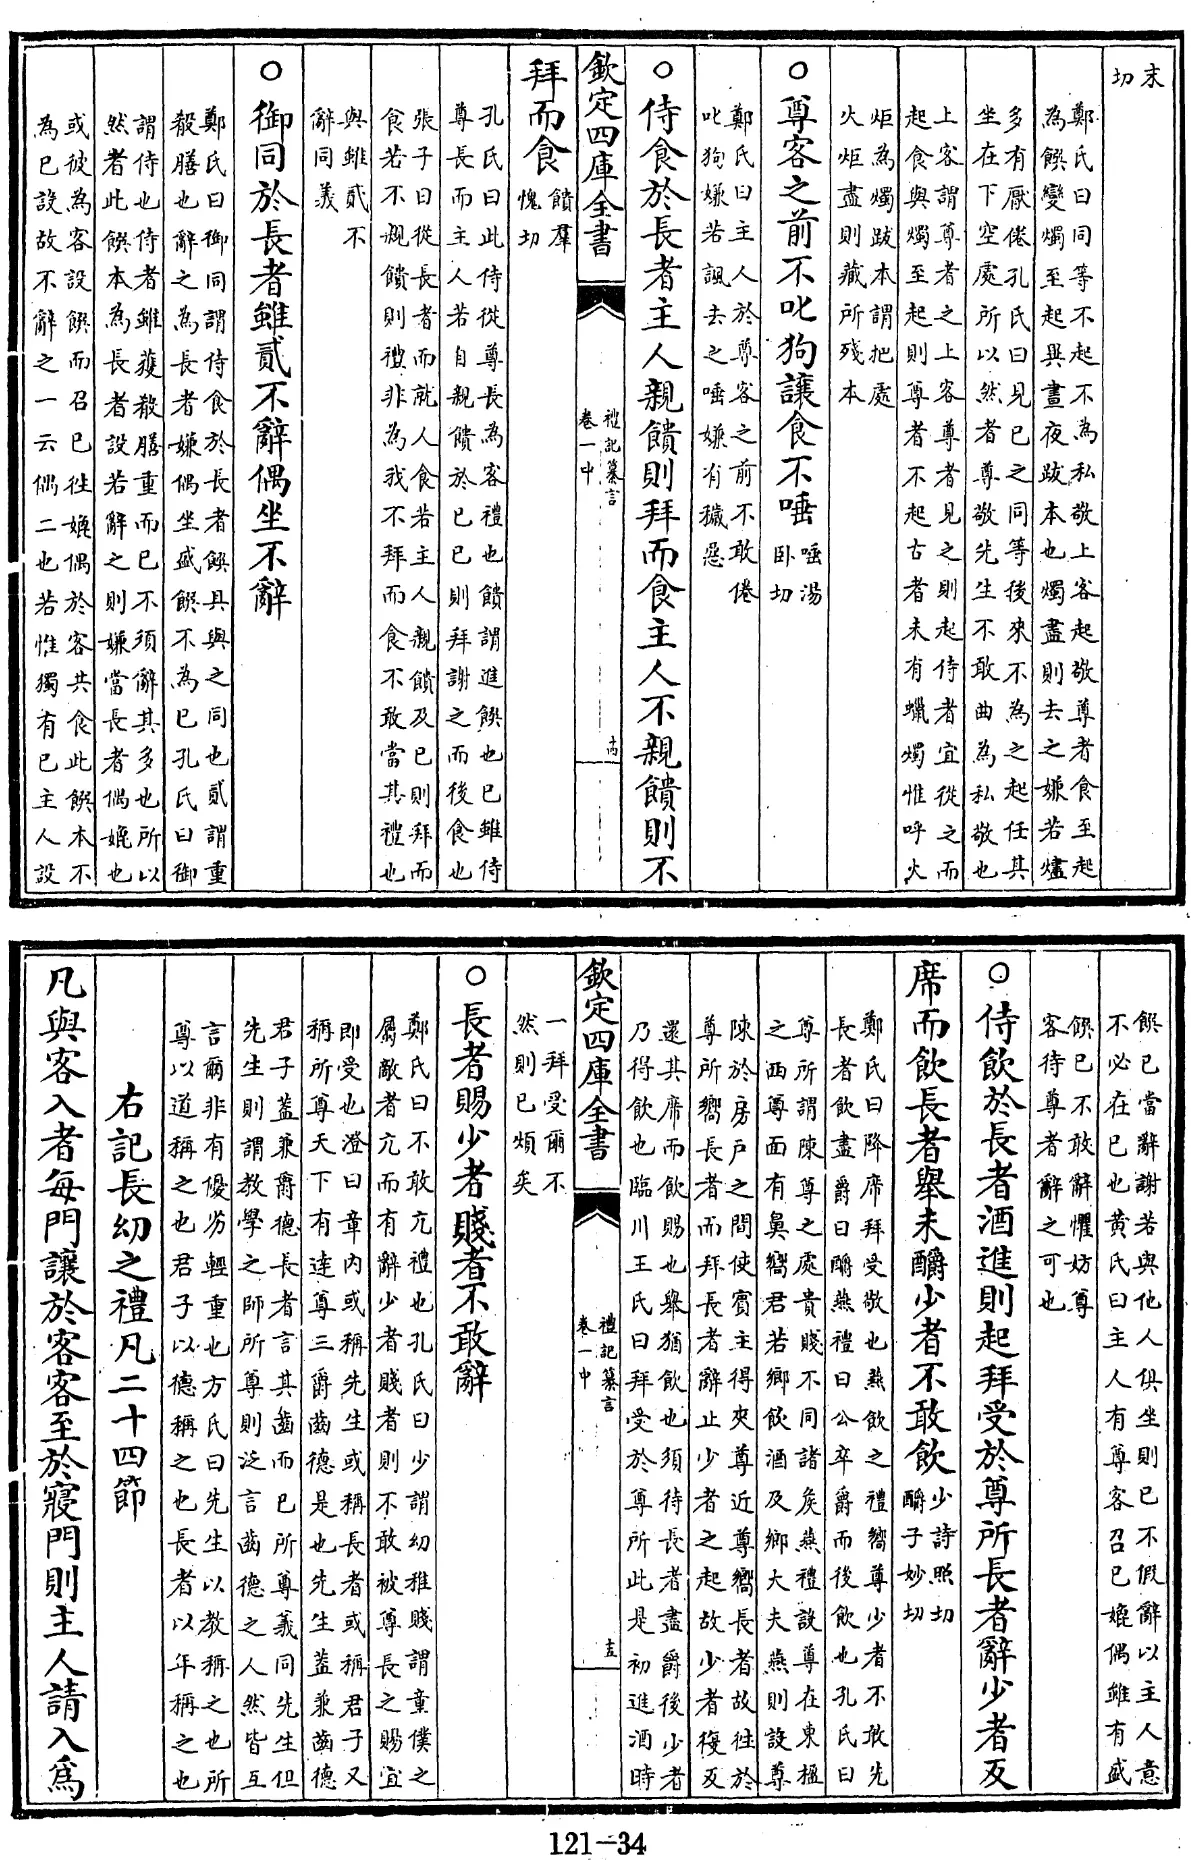 末
切
鄭氏曰同等不起不為私敬上客起敬尊者食至起
為饌變燭至起異晝夜跋本也燭盡則去之嫌若燼
多有厭倦孔氏曰見已之同等後來不為之起任其
坐在下空處所以然者尊敬先生不敢曲為私敬也
上客謂尊者之上客尊者見之則起侍者宜從之而
起食與燭至起則尊者不起古者未有蠟燭惟呼火
炬為燭跋本謂把處
火炬盡則藏所殘本
○尊客之前不叱狗讓食不唾 唾湯卧切
鄭氏曰主人於尊客之前不敢倦
叱狗嫌若諷去之唾嫌有穢惡
○侍食於長者主人親饋則拜而食主人不親饋則不
欽定四庫全書 禮記纂言卷一中
拜而食 饋羣愧切
孔氏曰此侍從尊長為客禮也饋謂進饌也已雖侍
尊長而主人若自親饋於已已則拜謝之而後食也
張子曰從長者而就人食若主人親饋及已則拜而
食若不親饋則禮非為我不拜而食不敢當其禮也
與雖貳不
辭同義
○御同於長者雖貳不辭偶坐不辭
鄭氏曰御同謂侍食於長者饌具與之同也貳謂重
殽膳也辭之為長者嫌偶坐盛饌不為已孔氏曰御
謂侍也侍者雖獲殽膳重而已不須辭其多也所以
然者此饌本為長者設若辭之則嫌當長者偶媲也
或彼為客設饌而召已往媲偶於客共食此饌本不
為已設故不辭之一云偶二也若惟獨有已主人設
饌已當辭謝若與他人俱坐則已不假辭以主人意
不必在已也黃氏曰主人有尊客召已媲偶雖有盛
饌已不敢辭懼妨尊
客待尊者辭之可也
○侍飲於長者酒進則起拜受於尊所長者辭少者反
席而飲長者舉未釂少者不敢飲 少詩照切釂子妙切
鄭氏曰降席拜受敬也燕飲之禮嚮尊少者不敢先
長者飲盡爵曰釂燕禮曰公卒爵而後飲也孔氏曰
尊所謂陳尊之處貴賤不同諸侯燕禮設尊在東楹
之西尊面有鼻嚮君若鄉飲酒及鄉大夫燕則設尊
陳於房戶之間使賓主得夾尊近尊嚮長者故往於
尊所嚮長者而拜長者辭止少者之起故少者復反
還其席而飲賜也舉猶飲也須待長者盡爵後少者
乃得飲也臨川王氏曰拜受於尊所此是初進酒時
欽定四庫全書 禮記纂言卷一中 十五
一拜受爾不
然則已煩矣
○長者賜少者賤者不敢辭
鄭氏曰不敢亢禮也孔氏曰少謂幼稚賤謂童僕之
屬敵者亢而有辭少者賤者則不敢被尊長之賜宜
即受也澄曰章內或稱先生或稱長者或稱君子又
稱所尊天下有達尊三爵齒德是也先生蓋兼齒德
君子蓋兼爵德長者言其齒而已所尊義同先生但
先生則謂教學之師所尊則泛言齒德之人然皆互
言爾非有優劣輕重也方氏曰先生以教稱之也所
尊以道稱之也君子以德稱之也長者以年稱之也
右記長幼之禮凡二十四節
凡與客入者每門讓於客客至於寢門則主人請入為
121-34